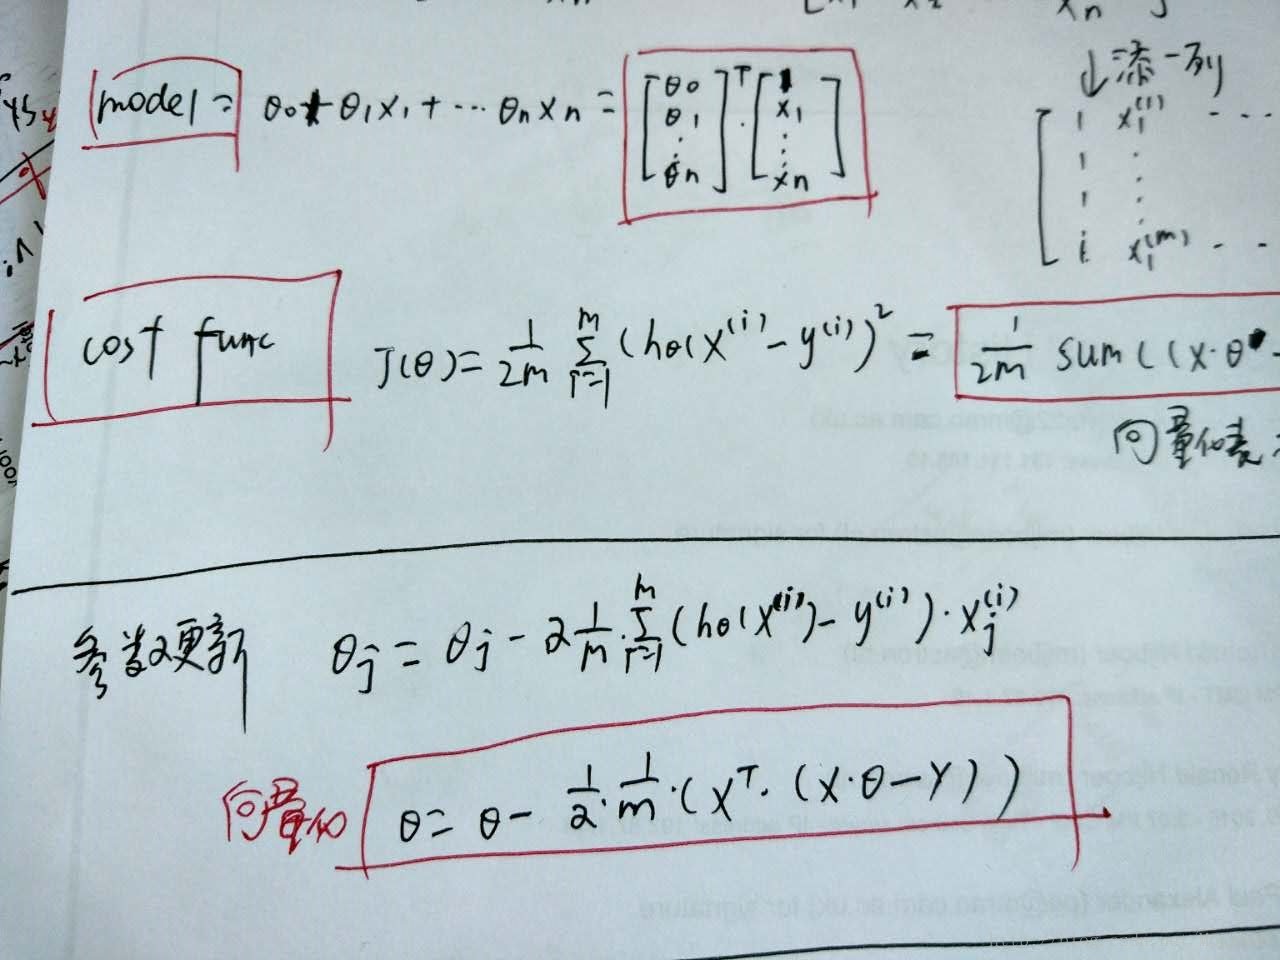 xₙ ]
model = θ₀ + θ₁x₁ + ⋯ θₙxₙ = [θ₀ θ₁ ⋮ θₙ]ᵀ · [1 x₁ ⋮ xₙ]
↓添一列
[ 1 x₁⁽¹⁾ ⋯
1 ⋮
1 ⋮
1 x₁⁽ᵐ⁾ ⋯
cost func J(θ) = 1/2m Σᵢ₌₁ᵐ (hθ(x⁽ⁱ⁾ - y⁽ⁱ⁾)² = 1/2m sum((X·θ -
向量化表
参数更新 θⱼ = θⱼ - 2 1/m · Σᵢ₌₁ᵐ (hθ(x⁽ⁱ⁾) - y⁽ⁱ⁾) · xⱼ⁽ⁱ⁾
向量化 θ = θ - 1/2 · 1/m · (Xᵀ · (X·θ - Y))